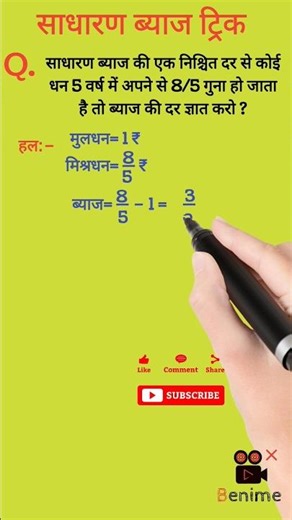 साधारण ब्याज ट्रिक
Q. साधारण ब्याज की एक निश्चित दर से कोई
धन 5 वर्ष में अपने से 8/5 गुना हो जाता
है तो ब्याज की दर ज्ञात करो ?
हल:- मुलधन= 1 ₹
मिश्रधन= 8/5 ₹
ब्याज= 8/5 - 1 = 3
Like Comment Share
SUBSCRIBE
Benime